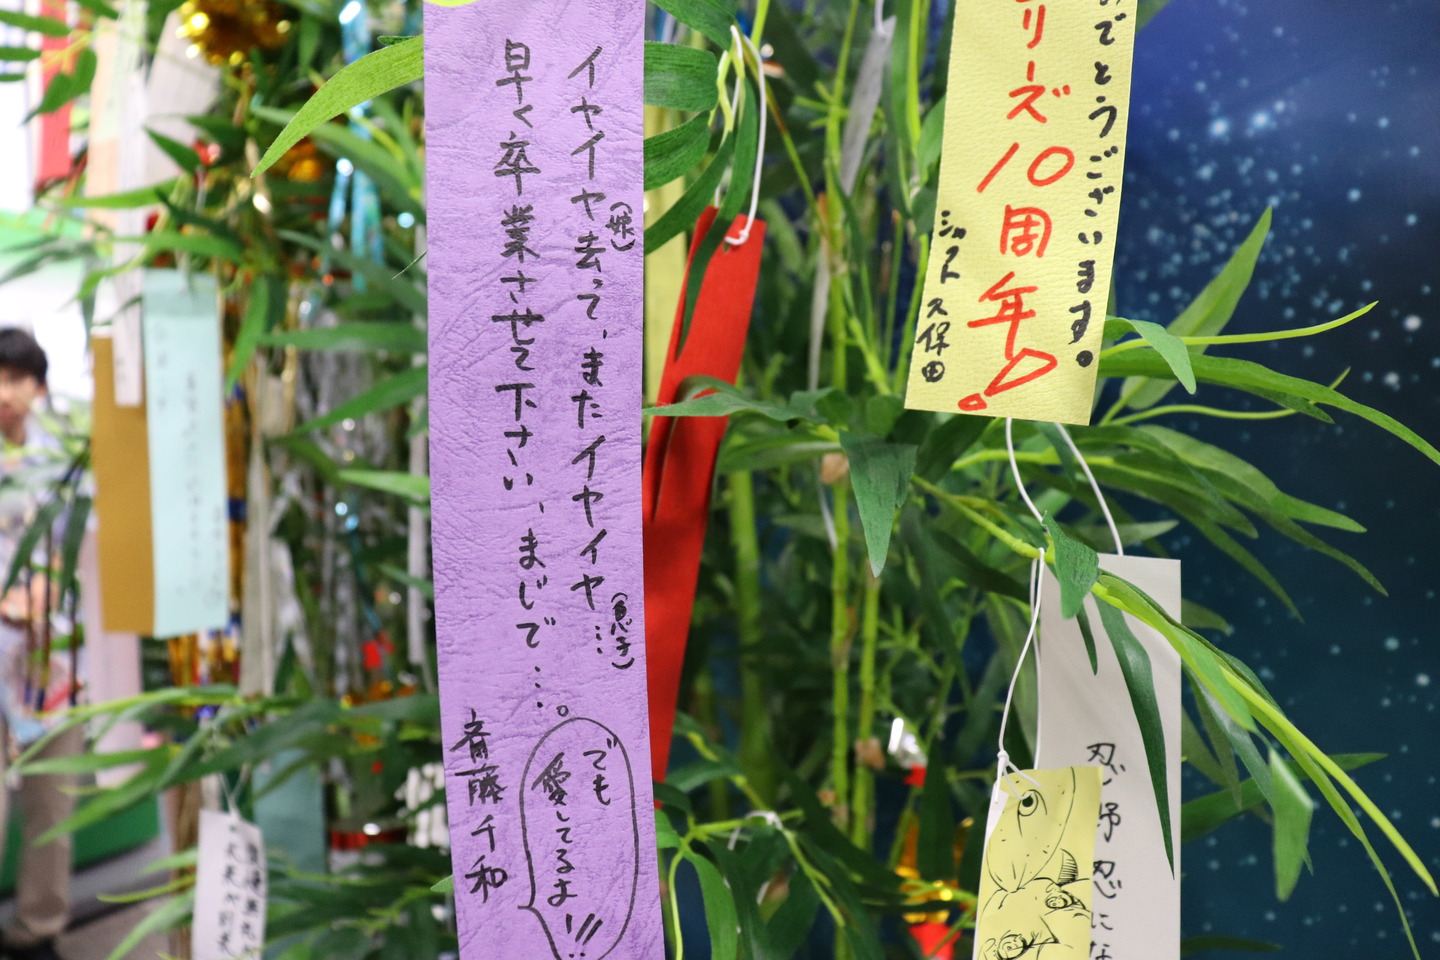 イヤイヤ(娘)去って、またイヤイヤ(息子)…
早く卒業させて下さい、まじで…。
でも
愛してるよ!!!
斎藤千和
めでとうございます。
リーズ10周年!
シャフト 久保田
忍野忍にな